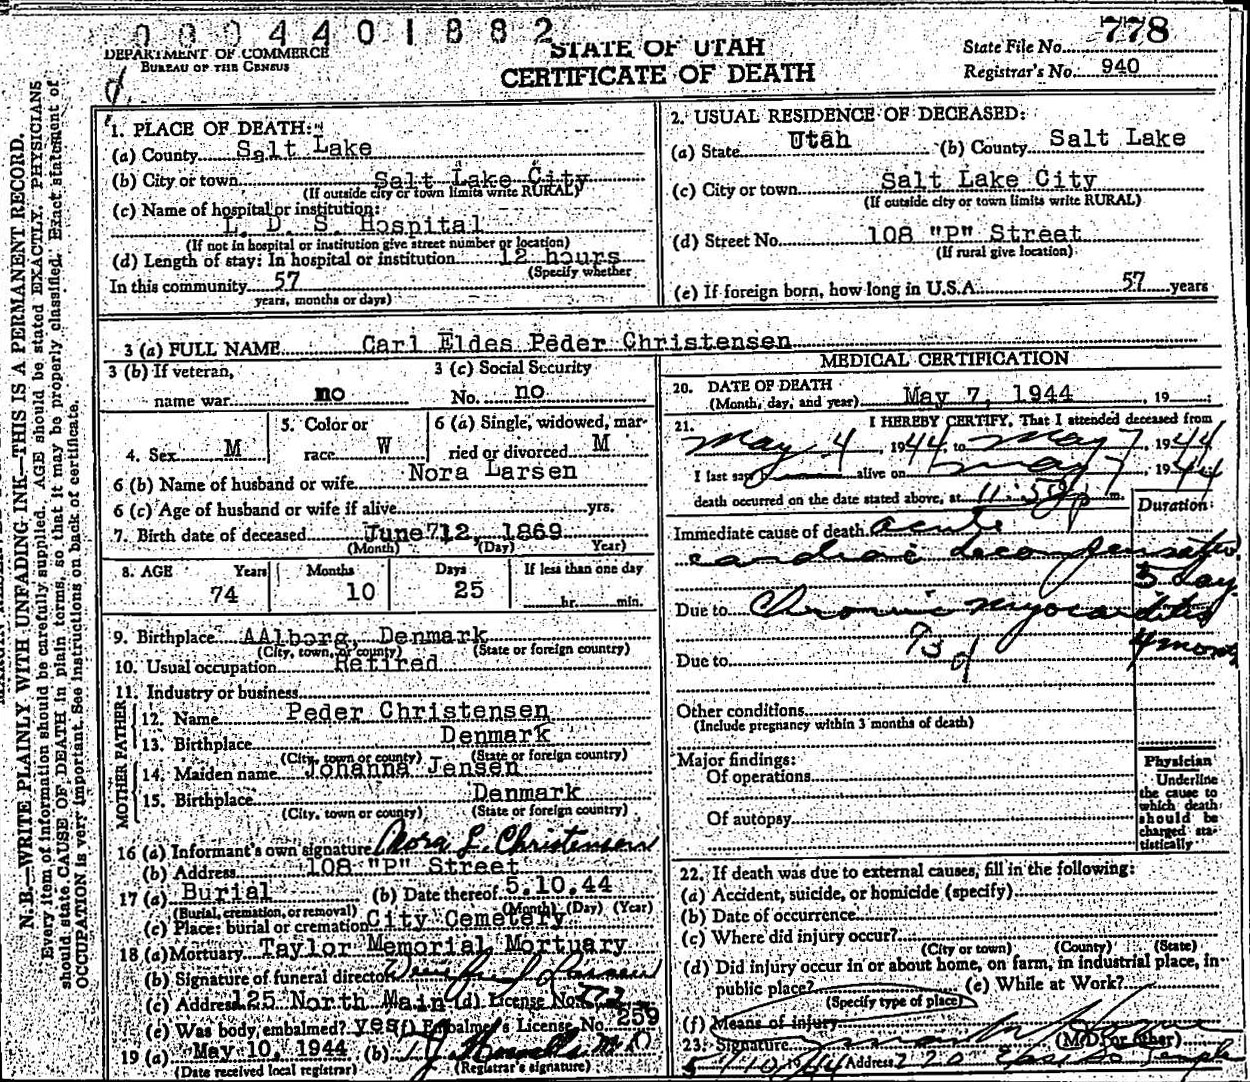 0004401882
DEPARTMENT OF COMMERCE
BUREAU OF THE CENSUS
STATE OF UTAH
CERTIFICATE OF DEATH
State File No. 778
Registrar's No. 940
N. B.—WRITE PLAINLY WITH UNFADING INK—THIS IS A PERMANENT RECORD.
Every item of information should be carefully supplied. AGE should be stated EXACTLY. PHYSICIANS
should state CAUSE OF DEATH in plain terms, so that it may be properly classified. Exact statement of
OCCUPATION is very important. See instructions on back of certificate.
1. PLACE OF DEATH:
(a) County Salt Lake
(b) City or town Salt Lake City
(If outside city or town limits write RURAL)
(c) Name of hospital or institution:
L. D. S. Hospital
(If not in hospital or institution give street number or location)
(d) Length of stay: In hospital or institution 12 hours
(Specify whether
In this community 57
years, months or days)
2. USUAL RESIDENCE OF DECEASED:
(a) State Utah (b) County Salt Lake
(c) City or town Salt Lake City
(If outside city or town limits write RURAL)
(d) Street No. 108 "P" Street
(If rural give location)
(e) If foreign born, how long in U.S.A. 57 years
3 (a) FULL NAME Carl Eldes Peder Christensen
3 (b) If veteran,
name war no
3 (c) Social Security
No. no
4. Sex M
5. Color or
race W
6 (a) Single, widowed, mar-
ried or divorced M
6 (b) Name of husband or wife Nora Larsen
6 (c) Age of husband or wife if alive yrs.
7. Birth date of deceased June 12, 1869
(Month) (Day) Year)
8. AGE Years Months Days If less than one day
74 10 25 hr. min.
9. Birthplace AAlborg, Denmark
(City, town, or county) (State or foreign country)
10. Usual occupation Retired
11. Industry or business
FATHER
12. Name Peder Christensen
13. Birthplace Denmark
(City, town or county) (State or foreign country)
MOTHER
14. Maiden name Johanna Jensen
15. Birthplace Denmark
(City, town or county) (State or foreign country)
16 (a) Informant's own signature Nora L. Christensen
(b) Address 108 "P" Street
17 (a) Burial (b) Date thereof 5.10.44
(Burial, cremation, or removal) (Month) (Day) (Year)
(c) Place: burial or cremation City Cemetery
18 (a) Mortuary Taylor Memorial Mortuary
(b) Signature of funeral director
(c) Address 125 North Main (d) License No.
(e) Was body embalmed? yes (f) Embalmer's License No. 259
19 (a) May 10, 1944 (b)
(Date received local registrar) (Registrar's signature)
MEDICAL CERTIFICATION
20. DATE OF DEATH
(Month, day, and year) May 7, 1944, 19
21. I HEREBY CERTIFY, That I attended deceased from
May 4, 1944, to May 7, 1944
I last saw alive on May 7 1944
death occurred on the date stated above, at 11:50 p m.
Duration
Immediate cause of death acute
cardiac decompensation
5 day
Due to Chronic myocarditis
4 months
93 d
Due to
Other conditions
(Include pregnancy within 3 months of death)
Major findings:
Of operations
Of autopsy
Physician
Underline
the cause to
which death
should be
charged sta-
tistically
22. If death was due to external causes, fill in the following:
(a) Accident, suicide, or homicide (specify)
(b) Date of occurrence
(c) Where did injury occur?
(City or town) (County) (State)
(d) Did injury occur in or about home, on farm, in industrial place, in
public place? (e) While at Work?
(Specify type of place)
(f) Means of injury
23. Signature
(M.D. or other)
5/10/44 Address East So Temple